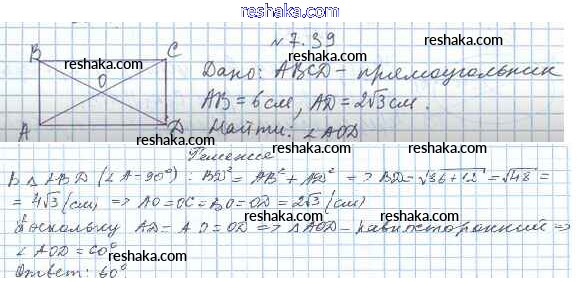 gdz.reshaka.com
№ 7.39
B C reshaka.com
O
reshaka.com
Дано: ABCD - прямоугольник
AB = 6 см, AD = 2√3 см.
A reshaka.com D reshaka.com
Найти: ∠AOD
Решение
В △ ABD (∠A = 90°): BD² = AB² + AD² => BD = √36+12 = √48 =
reshaka.com reshaka.com
= 4√3 (см) => AO = OC = BO = OD = 2√3 (см)
reshaka.com
Поскольку AD = AO = OD => △AOD - равносторонний =>
reshaka.com reshaka.com
∠AOD = 60°
reshaka.com
Ответ: 60°